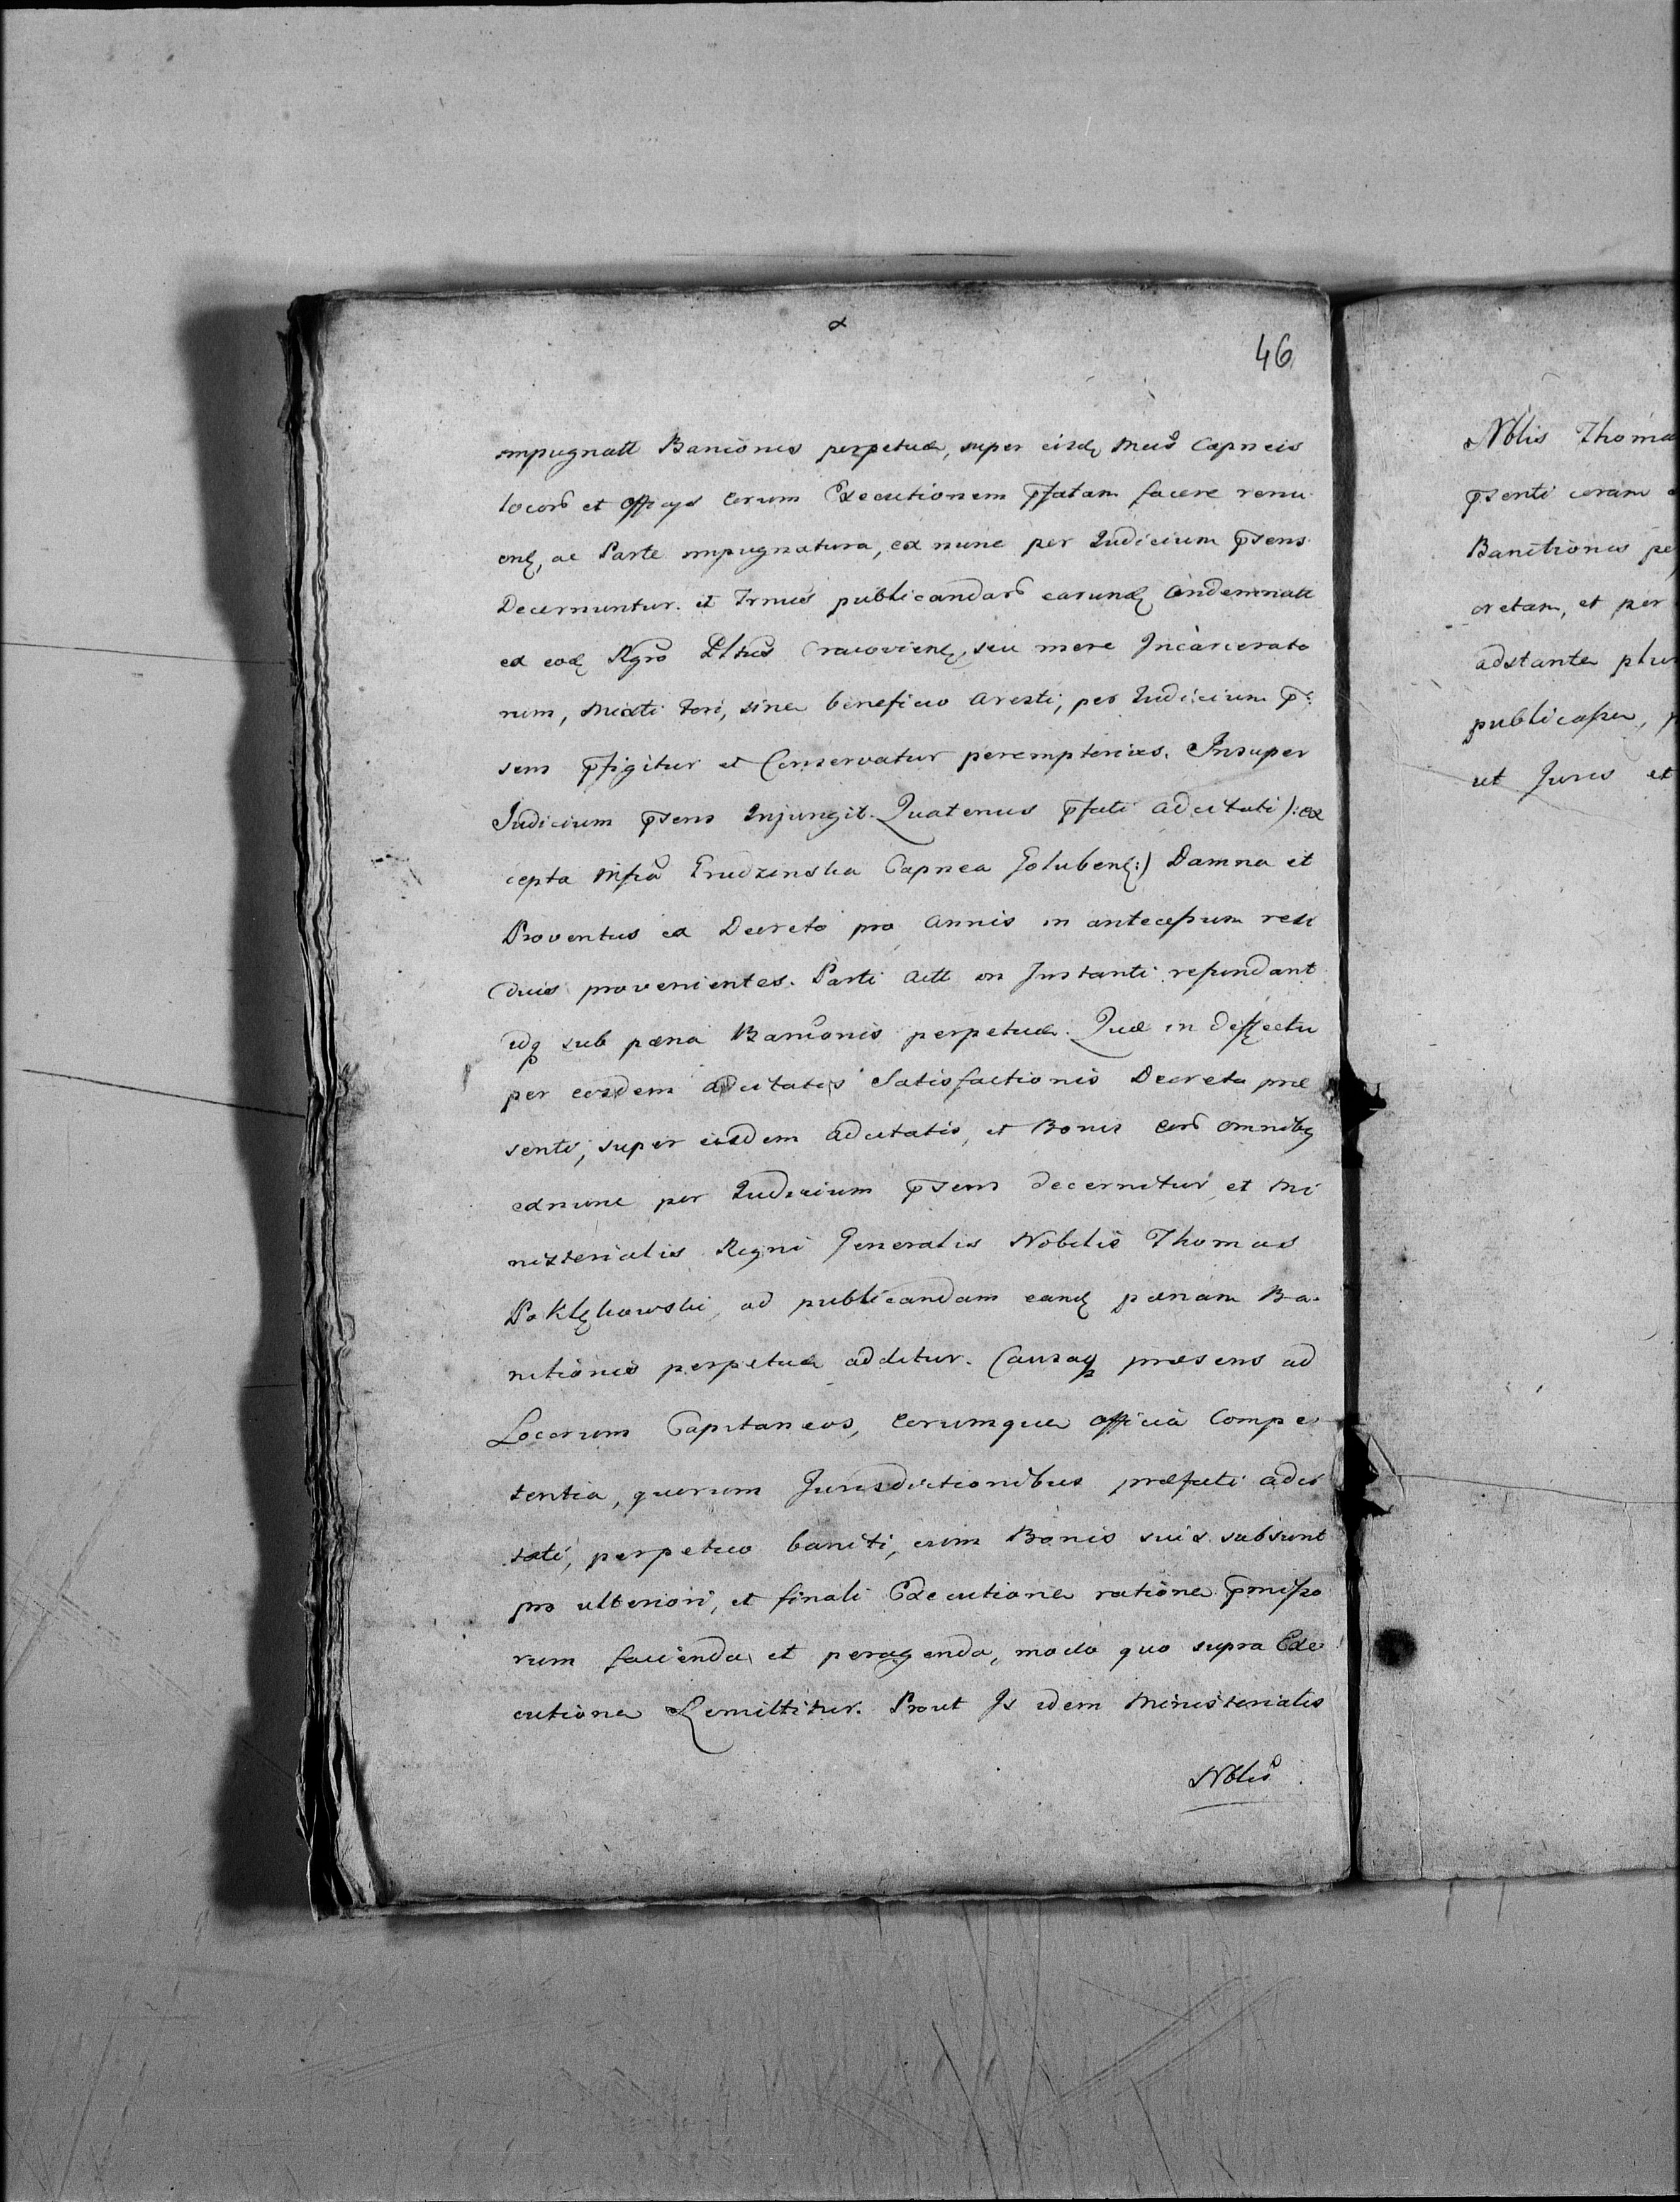 46
impugnatt Banionis perpetuæ, super eisdę Meis Capneis
locorũ et Officys eorum Executionem p̄fatam facere renu
enę, ac Parte impugnatura, ex nunc per Judicium p̄sens
Decernuntur. et Trnus publicandarũ earundę Condemnatt
ex eodę Rgro Plthus Cracovienę, seu mere Incarcerato
rum, Mixti Fori, sine beneficio Aresti, per Judicium p̄:
sens p̄figitur et Conservatur peremptories. Insuper
Judicium p̄sens Injungit. Quatenus p̄fati adcitati ):ex
cepta Mfca Grudzinska Capnea Golubenę:) Damna et
Proventus ex Decreto pro Annis in antecessum resi
duis provenientes. Parti Actt in Instanti refundant
idq sub pæna Banionis perpetuæ. Quæ in deffectu
per eosdem adcitatos Satisfactionis Decreto præ
senti, super eisdem adcitatis, et Bonis eorũ omnibę
exnunc per Judicium p̄sens decernitur, et Mi
nisterialis Regni Generalis Nobilis Thomas
Poklękowski, ad publicandam eandę pænam Ba-
nitionis perpetuæ additur. Causaq præsens ad
Locorum Capitaneos, Eorumque Officia Compe
tentia, quorum Jurisdictionibus præfati adci
tati, perpetuo baniti, cum Bonis suis subsunt
pro ulteriori, et finali Executione ratione p̄misso
rum facienda et peragenda, modo quo supra Exe
cutione Remittitur. Prout Is idem Ministerialis
Nblis
Nblis Thoma
p̄senti coram
Banitionis pe
cretam, et per
adstante plu
publicasse, p
ut Juris et